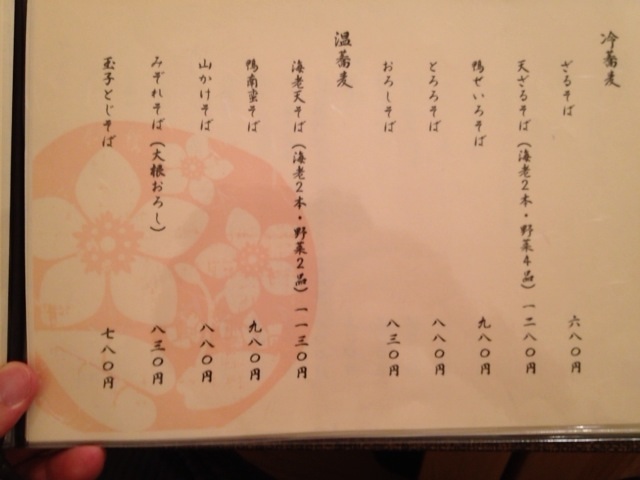 冷蕎麦
ざるそば 六八〇円
天ざるそば（海老２本・野菜４品） 一二八〇円
鴨せいろそば 九八〇円
とろろそば 八八〇円
おろしそば 八三〇円
温蕎麦
海老天そば（海老２本・野菜２品） 一一三〇円
鴨南蛮そば 九八〇円
山かけそば 八八〇円
みぞれそば（大根おろし） 八三〇円
玉子とじそば 七八〇円